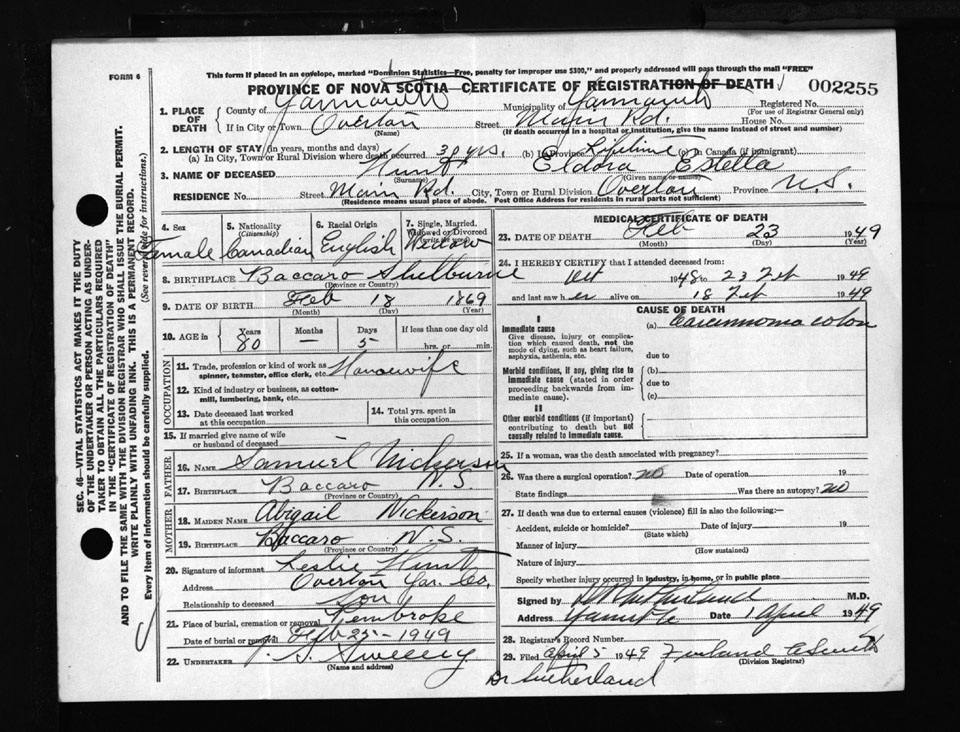 FORM 6
This form if placed in an envelope, marked "Dominion Statistics—Free, penalty for improper use $300," and properly addressed will pass through the mail "FREE"
PROVINCE OF NOVA SCOTIA—CERTIFICATE OF REGISTRATION OF DEATH
002255
1. PLACE OF DEATH
County of Yarmouth Municipality of Yarmouth Registered No.
(For use of Registrar General only)
If in City or Town Overton Street Main Rd. House No.
(Name) (If death occurred in a hospital or institution, give the name instead of street and number)
2. LENGTH OF STAY (in years, months and days)
(a) In City, Town or Rural Division where death occurred 30 yrs. (b) In Province Lifetime (c) In Canada (if immigrant)
3. NAME OF DECEASED Hunt Eldora Estella
(Surname) (Given name or names)
RESIDENCE No. Street Main Rd. City, Town or Rural Division Overton Province N.S.
(Residence means usual place of abode. Post Office Address for residents in rural parts not sufficient)
4. Sex Female
5. Nationality (Citizenship) Canadian
6. Racial Origin English
7. Single, Married, Widowed or Divorced (Write the word) Widow
8. BIRTHPLACE Baccaro Shelburne
(Province or Country)
9. DATE OF BIRTH Feb 18 1869
(Month) (Day) (Year)
10. AGE in Years 80 Months — Days 5 If less than one day old hrs. or min.
OCCUPATION
11. Trade, profession or kind of work as spinner, teamster, office clerk, etc. Housewife
12. Kind of industry or business, as cotton-mill, lumbering, bank, etc.
13. Date deceased last worked at this occupation
14. Total yrs. spent in this occupation
15. If married give name of wife or husband of deceased —
FATHER
16. NAME Samuel Nickerson
17. BIRTHPLACE Baccaro N.S.
(Province or Country)
MOTHER
18. MAIDEN NAME Abigail Nickerson
19. BIRTHPLACE Baccaro N.S.
(Province or Country)
20. Signature of informant Leslie Hunt
Address Overton Yar. Co.
Relationship to deceased Son
21. Place of burial, cremation or removal Pembroke
Date of burial or removal Feb 25 - 1949
22. UNDERTAKER S. Sweeny
(Name and address)
MEDICAL CERTIFICATE OF DEATH
23. DATE OF DEATH Feb 23 1949
(Month) (Day) (Year)
24. I HEREBY CERTIFY that I attended deceased from:
Oct 1948 to 23 Feb 1949
and last saw her alive on 18 Feb 1949
CAUSE OF DEATH
I
Immediate cause
Give disease, injury or complication which caused death, not the mode of dying, such as heart failure, asphyxia, asthenia, etc.
(a) Carcinnoma colon
due to
Morbid conditions, if any, giving rise to immediate cause (stated in order proceeding backwards from immediate cause).
(b)
due to
(c)
II
Other morbid conditions (if important) contributing to death but not causally related to immediate cause.
25. If a woman, was the death associated with pregnancy?
26. Was there a surgical operation? no Date of operation 19
State findings Was there an autopsy? no
27. If death was due to external causes (violence) fill in also the following:—
Accident, suicide or homicide? Date of injury 19
(State which)
Manner of injury
(How sustained)
Nature of injury
Specify whether injury occurred in industry, in home, or in public place
Signed by Sutherland M.D.
Address Date 1 April 1949
28. Registrar's Record Number
29. Filed April 5 1949
(Division Registrar)
Dr Sutherland
SEC. 46—VITAL STATISTICS ACT MAKES IT THE DUTY
OF THE UNDERTAKER OR PERSON ACTING AS UNDER-
TAKER TO OBTAIN ALL THE PARTICULARS REQUIRED
IN THE "CERTIFICATE OF REGISTRATION OF DEATH"
AND TO FILE THE SAME WITH THE DIVISION REGISTRAR WHO SHALL ISSUE THE BURIAL PERMIT.
WRITE PLAINLY WITH UNFADING INK. THIS IS A PERMANENT RECORD.
Every item of information should be carefully supplied. (See reverse side for instructions.)